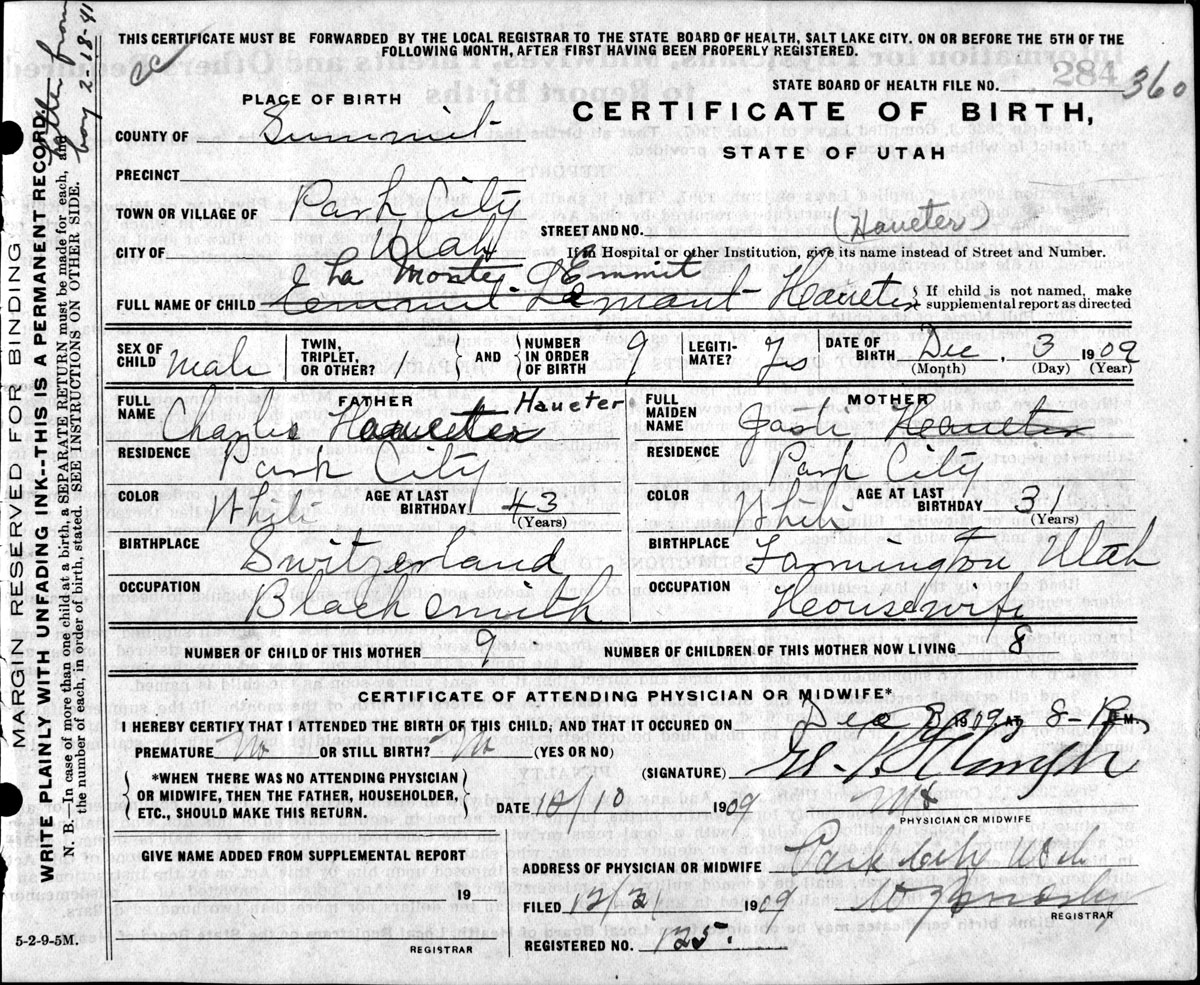 THIS CERTIFICATE MUST BE FORWARDED BY THE LOCAL REGISTRAR TO THE STATE BOARD OF HEALTH, SALT LAKE CITY, ON OR BEFORE THE 5TH OF THE
FOLLOWING MONTH, AFTER FIRST HAVING BEEN PROPERLY REGISTERED.
STATE BOARD OF HEALTH FILE NO. 284 360
PLACE OF BIRTH
CERTIFICATE OF BIRTH,
STATE OF UTAH
COUNTY OF Summit
PRECINCT
TOWN OR VILLAGE OF Park City
STREET AND NO. (Haueter)
CITY OF Utah
If in Hospital or other Institution, give its name instead of Street and Number.
La Monte Emmit
FULL NAME OF CHILD Haueter
{ If child is not named, make
supplemental report as directed
SEX OF CHILD Male
TWIN, TRIPLET, OR OTHER? 1
} AND {
NUMBER IN ORDER OF BIRTH 9
LEGITI-MATE? Yes
DATE OF BIRTH Dec, 3 1909
(Month) (Day) (Year)
FATHER
FULL NAME Charles Haueter
RESIDENCE Park City
COLOR White
AGE AT LAST BIRTHDAY 43
(Years)
BIRTHPLACE Switzerland
OCCUPATION Blacksmith
MOTHER
FULL MAIDEN NAME Haueter
RESIDENCE Park City
COLOR White
AGE AT LAST BIRTHDAY 31
(Years)
BIRTHPLACE Farmington Utah
OCCUPATION Housewife
NUMBER OF CHILD OF THIS MOTHER 9
NUMBER OF CHILDREN OF THIS MOTHER NOW LIVING 8
CERTIFICATE OF ATTENDING PHYSICIAN OR MIDWIFE*
I HEREBY CERTIFY THAT I ATTENDED THE BIRTH OF THIS CHILD, AND THAT IT OCCURED ON Dec 3 1909, AT 8- P M.
PREMATURE No OR STILL BIRTH? No (YES OR NO)
(SIGNATURE)
{ *WHEN THERE WAS NO ATTENDING PHYSICIAN
OR MIDWIFE, THEN THE FATHER, HOUSEHOLDER,
ETC., SHOULD MAKE THIS RETURN. }
DATE 1909
PHYSICIAN OR MIDWIFE
GIVE NAME ADDED FROM SUPPLEMENTAL REPORT
19
REGISTRAR
ADDRESS OF PHYSICIAN OR MIDWIFE Park City Utah
FILED 1909
REGISTRAR
REGISTERED NO. 125.
5-2-9-5M.
MARGIN RESERVED FOR BINDING
WRITE PLAINLY WITH UNFADING INK--THIS IS A PERMANENT RECORD.
N. B.—In case of more than one child at a birth, a SEPARATE RETURN must be made for each, and
the number of each, in order of birth, stated. SEE INSTRUCTIONS ON OTHER SIDE.
letter from
boy 2-18-41